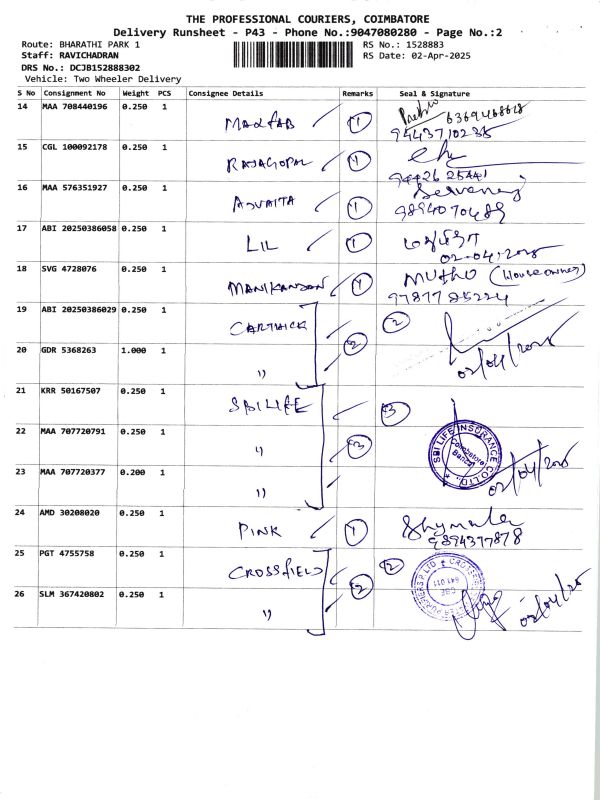 THE PROFESSIONAL COURIERS, COIMBATORE
Delivery Runsheet - P43 - Phone No.:9047080280 - Page No.:2
Route: BHARATHI PARK 1 RS No.: 1528883
Staff: RAVICHADRAN RS Date: 02-Apr-2025
DRS No.: DCJB152888302
Vehicle: Two Wheeler Delivery
S No Consignment No Weight PCS Consignee Details Remarks Seal & Signature
14 MAA 708440196 0.250 1 MAXFAB 1
9443710235
15 CGL 100092178 0.250 1 RAJAGOPAL 1
94426 25441
16 MAA 576351927 0.250 1 ADVAITA 1
9894070489
17 ABI 20250386058 0.250 1 LIL 1
02-04-2025
18 SVG 4728076 0.250 1 MANIKANDAN 1 Muthu (House owner)
97877 85224
19 ABI 20250386029 0.250 1 CARTHICK 2
20 GDR 5368263 1.000 1 " 2 02/04/2025
21 KRR 50167507 0.250 1 SBI LIFE 3
22 MAA 707720791 0.250 1 " 3 SBI LIFE INSURANCE CO. LTD. Coimbatore
23 MAA 707720377 0.200 1 " 02/04/2025
24 AMD 30208020 0.250 1 PINK 1 Shymala
9894377878
25 PGT 4755758 0.250 1 CROSSFIELD 2
CBE
641 011
26 SLM 367420802 0.250 1 " 2 02/04/25